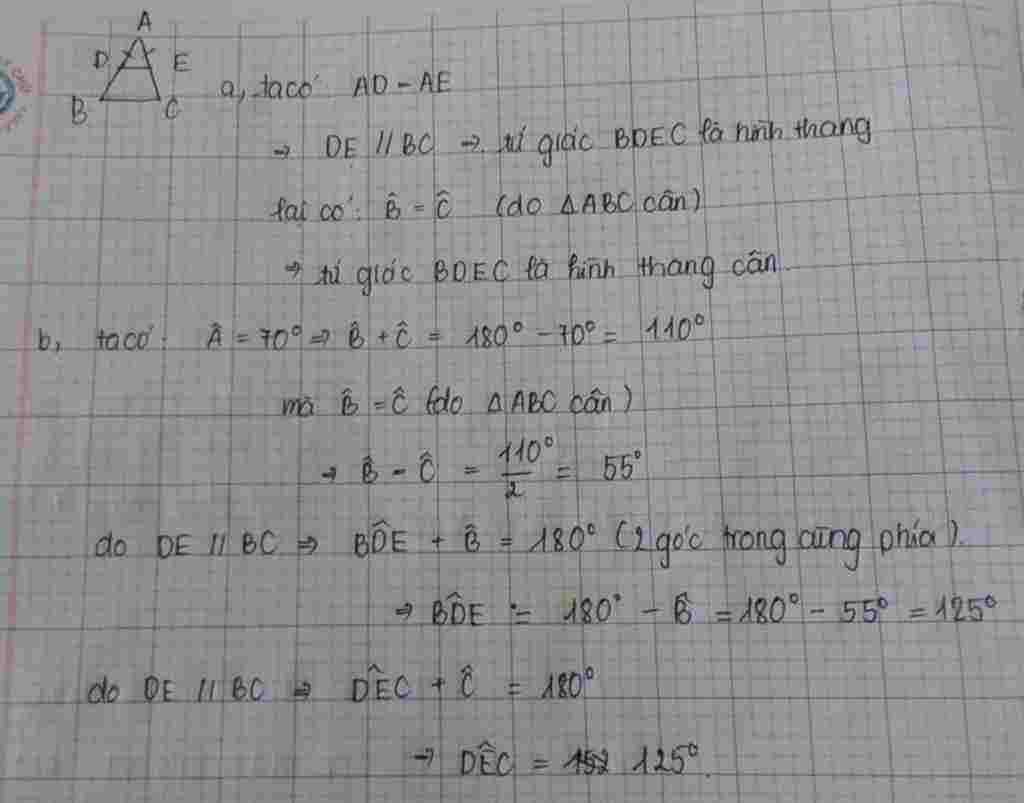 A
D E
B C
a, ta có AD - AE
→ DE // BC → tứ giác BDEC là hình thang
lại có: B̂ = Ĉ (do △ABC cân)
→ tứ giác BDEC là hình thang cân
b, ta có: Â = 70° ⇒ B̂ + Ĉ = 180° - 70° = 110°
mà B̂ = Ĉ (do △ABC cân)
→ B̂ - Ĉ = 110°/2 = 55°
do DE // BC ⇒ BD̂E + B̂ = 180° (2 góc trong cùng phía).
⇒ BD̂E = 180° - B̂ = 180° - 55° = 125°
do DE // BC ⇒ DÊC + Ĉ = 180°
→ DÊC = 125°.